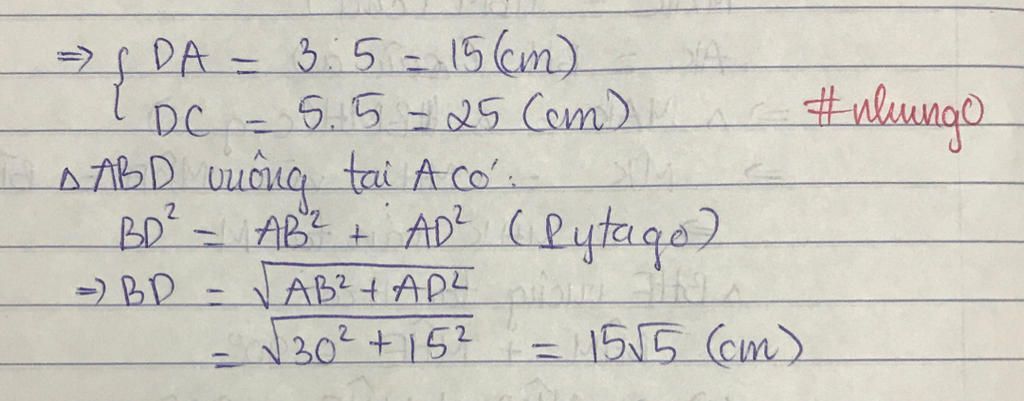 ⇒ { DA = 3.5 = 15 (cm)
DC = 5.5 = 25 (cm)
#nhung0
△ABD vuông tại A có:
BD² = AB² + AD² (Pytago)
⇒ BD = √(AB² + AD²)
= √(30² + 15²) = 15√5 (cm)